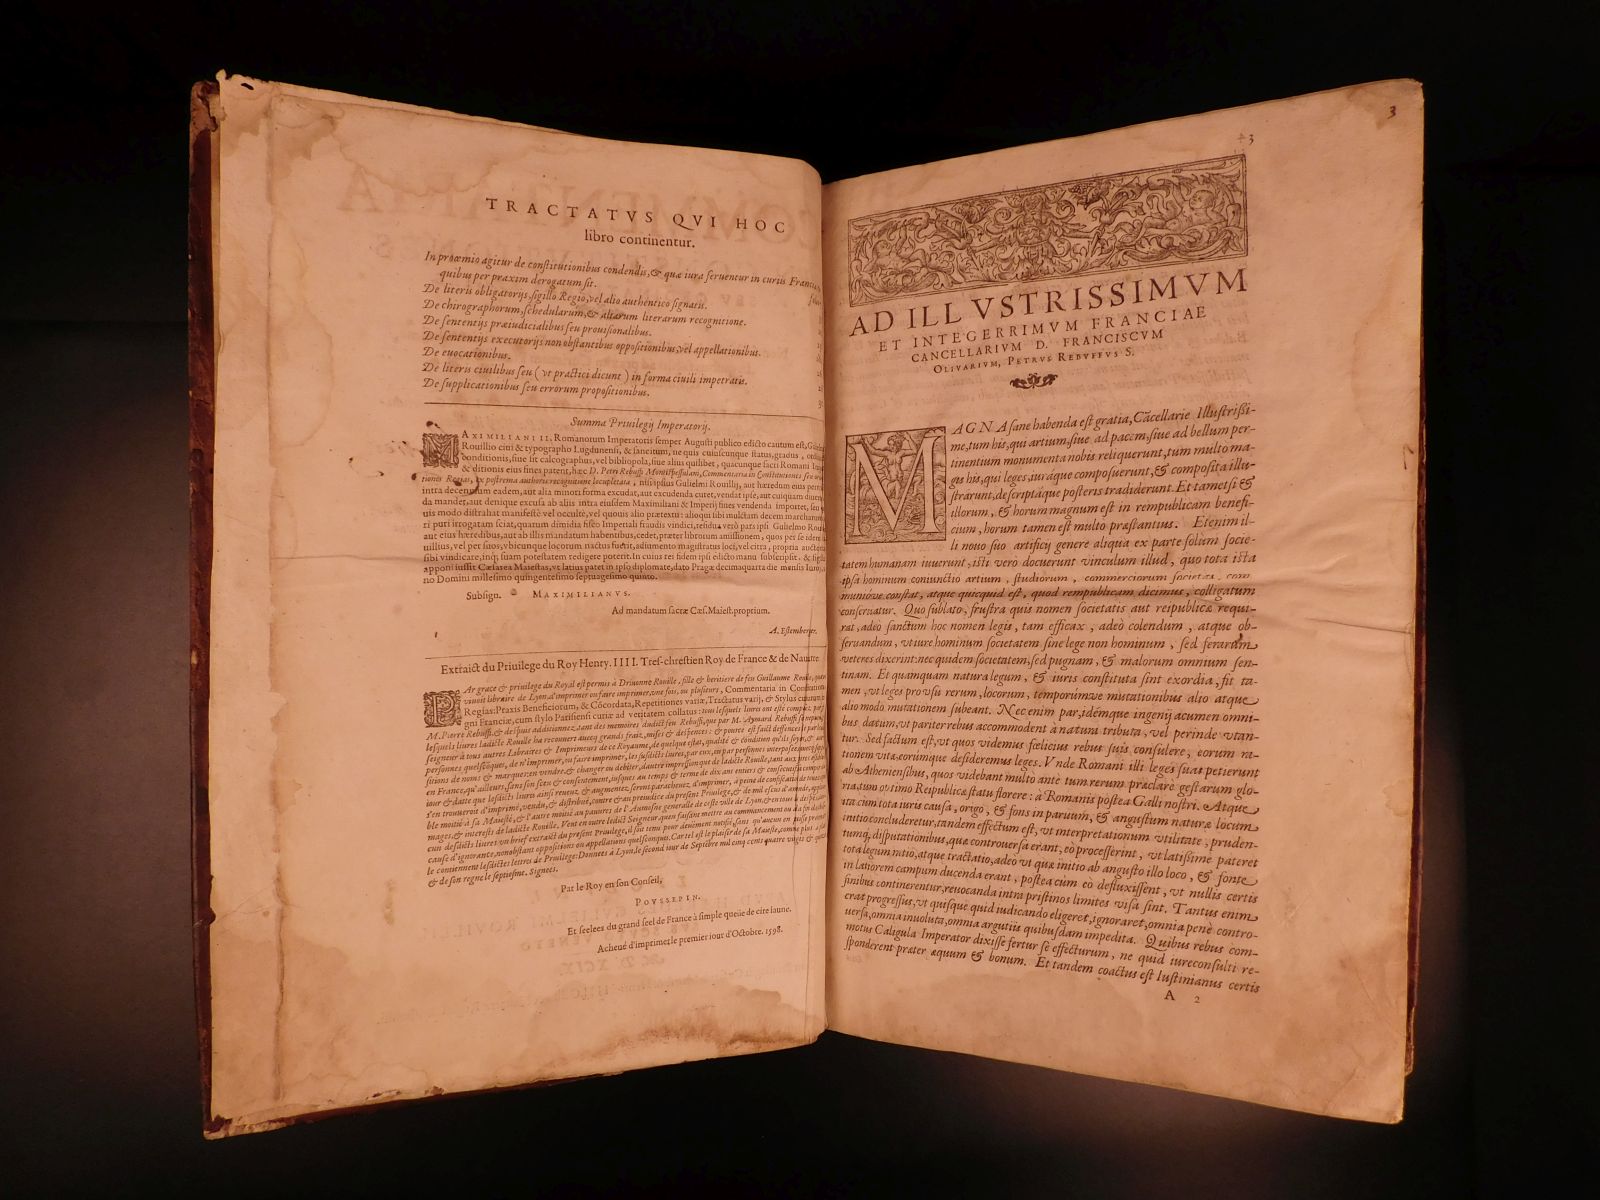 TRACTATVS QVI HOC
libro continentur.
In proœmio agitur de constitutionibus condendis, & quæ iura seruentur in curiis Franciæ,
quibus per praxim derogatum sit.
De literis obligatorijs, sigillo Regio, vel alio authentico signatis.
De chirographorum, schedularum, & aliarum literarum recognitione.
De sententijs præiudicialibus seu prouisionalibus.
De sententijs executorijs non obstantibus oppositionibus, vel appellationibus.
De euocationibus.
De literis ciuilibus seu (vt practici dicunt) in forma ciuili impetratis.
De supplicationibus seu errorum propositionibus.
Summa Priuilegij Imperatorij.
MAXIMILIANI II. Romanorum Imperatoris semper Augusti publico edicto cautum est,
Rouillio ciui & typographo Lugdunensi, & sancitum, ne quis cuiuscunque status, gradus,
conditionis, siue sit calcographus, vel bibliopola, siue alius quilibet, quacunque sacri Romani
& ditionis eius fines patent, hæc D. Petri Rebuffi Monspessulani, Commentaria in Constitutiones seu
tiones Regias, ex postrema authoris recognitione locupletata, nisi ipsius Gulielmi Rouillij, aut hæredum eius
intra decennium eadem, aut alia minori forma excudat, aut excudenda curet, vendat ipse, aut cuiquam
da mandet, aut denique excusa ab aliis intra eiusdem Maximiliani & Imperij fines vendenda importet,
uis modo distrahat manifestè vel occultè, vel quouis alio prætextu: alioqui sibi mulctam decem marcharum
ri puri irrogatam sciat, quarum dimidia fisco Imperiali fraudis vindici, residua verò pars ipsi Gulielmo
aut eius hæredibus, aut ab illis mandatum habentibus, cedet, præter librorum amissionem, quos per se
uillius, vel per suos, vbicunque locorum nactus fuerit, adiumento magistratus loci, vel citra, propria
sibi vindicare, inq; suam potestatem redigere poterit. In cuius rei fidem ipsi edicto manu subscripsit, &
apponi iussit Cæsarea Maiestas, vt latius patet in ipso diplomate, dato Pragæ decimaquarta die mensis
no Domini millesimo quingentesimo septuagesimo quinto.
Subsign. MAXIMILIANVS.
Ad mandatum sacræ Cæs. Maiest. proprium.
A. Estemberger.
Extraict du Priuilege du Roy Henry. IIII. Tres-chrestien Roy de France & de Nauarre
PAr grace & priuilege du Roy al est permis à Driuonne Rouille, fille & heritiere de feu Guillaume Rouille,
viuoit libraire de Lyon, d'imprimer ou faire imprimer, vne fois, ou plusieurs, Commentaria in
Regias: Praxis Beneficiorum, & Cõcordata, Repetitiones variæ, Tractatus varij, & Stylus
gni Franciæ, cum stylo Parisiensi curiæ ad veritatem collatus: tous lesquels liures ont esté
M. Pierre Rebuffi, & despuis additionnez, tant des memoires dudict feu Rebuffi, que par M. Aymard Rebuffi
lesquels liures ladicte Rouille ha recouuert auecq grands fraiz, mises & despences: & pource est faict deffences
seigneur à tous autres Libraires & Imprimeurs de ce Royaume, de quelque estat, qualité & condition qu'ils soyent,
personnes quelsconques, de n'imprimer, ou faire imprimer, les susdicts liures, par eux, ou par personnes interposees
sitions de noms & marques: en vendre, & changer ou debiter, d'autre impression que de ladicte Rouille, tant
en France, qu'ailleurs, sans son sceu & consentement, iusques au temps & terme de dix ans entiers & consecutifs
iour & datte que lesdicts liures ainsi reueuz & augmentez, seront paracheuez d'imprimer, à peine de confiscation
s'en trouueroit d'imprimé, vendu, & distribué, contre & au preiudice du present Priuilege, & de mil escus d'amende,
ble moitié à sa Maiesté, & l'autre moitié au pauures de l'Aumosne generalle de ceste ville de Lyon,
mages, & interests de ladicte Rouille. Veut en outre ledict Seigneur, quen faisant mettre au commancement ou à la fin
cun desdicts liures vn brief extraict du present Priuilege, il soit tenu pour deuëment notifié, sans qu'aucun en
cause d'ignorance, nonobstant oppositions ou appellations quelsconques. Car tel est le plaisir de sa Maiesté, comme plus à
le contiennent lesdictes lettres de Priuilege: Donnees à Lyon, le second iour de Septẽbre mil cinq cens quatre vingts
& de son regne le septiesme. Signees.
Par le Roy en son Conseil,
POVSSEPIN.
Et seelees du grand seel de France à simple queüe de cire iaune.
Acheué d'imprimer, le premier iour d'Octobre. 1598.
3
3
AD ILLVSTRISSIMVM
ET INTEGERRIMVM FRANCIAE
CANCELLARIVM D. FRANCISCVM
OLIVARIVM, PETRVS REBVFFVS S.
MAGNA sane habenda est gratia, Cãcellarie Illustrissi-
me, tum his, qui artium, siue ad pacem, siue ad bellum per-
tinentium monumenta nobis reliquerunt, tum multo ma-
gis his, qui leges, iuráque composuerunt, & composita illu-
strarunt, descriptáque posteris tradiderunt. Et tametsi &
illorum, & horum magnum est in rempublicam benefi-
cium, horum tamen est multo præstantius. Etenim il-
li nouo suo artificij genere aliqua ex parte solùm socie-
tatem humanam iuuerunt, isti verò docuerunt vinculum illud, quo tota ista
ipsa hominum coniunctio artium, studiorum, commerciorum societas, com-
munióue constat, atque quicquid est, quod rempublicam dicimus, colligatum
conseruatur. Quo sublato, frustra quis nomen societatis aut reipublicæ requi-
rat, adeò sanctum hoc nomen legis, tam efficax, adeò colendum, atque ob-
seruandum, vt iure hominum societatem sine lege non hominum, sed ferarum
veteres dixerint: nec quidem societatem, sed pugnam, & malorum omnium sen-
tinam. Et quamquam natura legum, & iuris constituta sint exordia, fit ta-
men, vt leges pro vsu rerum, locorum, temporúmve mutationibus alio atque
alio modo mutationem subeant. Nec enim par, idémque ingenij acumen omni-
bus datum, vt pariter rebus accommodent à natura tributa, vel perinde vtan-
tur. Sed factum est, vt quos videmus fœlicius rebus suis consulere, eorum ra-
tionem vitæ, eorumque desideremus leges. Vnde Romani illi leges suas petierunt
ab Atheniensibus, quos videbant multo antè tum rerum præclarè gestarum glo-
ria, tum optimo Reipublicæ statu florere: à Romanis postea Galli nostri. Atque
ita cùm tota iuris causa, origo, & fons in paruum, & angustum naturæ locum
initio concluderetur, tandem effectum est, vt interpretationum vtilitate, pruden-
tumq; disputationibus, quæ controuersa erant, eò processerint, vt latissimè pateret
tota legum ratio, atque tractatio, adeò vt quæ initio ab angusto illo loco, & fonte
in latiorem campum ducenda erant, postea cùm eo defluxissent, vt nullis certis
finibus continerentur, reuocanda intra pristinos limites visa sint. Tantus enim
erat progressus, vt quisque quid iudicando eligeret, ignoraret, omnia penè contro-
uersa, omnia inuoluta, omnia argutiis quibusdam impedita. Quibus rebus com-
motus Caligula Imperator dixisse fertur se effecturum, ne quid iureconsulti re-
sponderent præter æquum & bonum. Et tandem coactus est Iustinianus certis
A 2